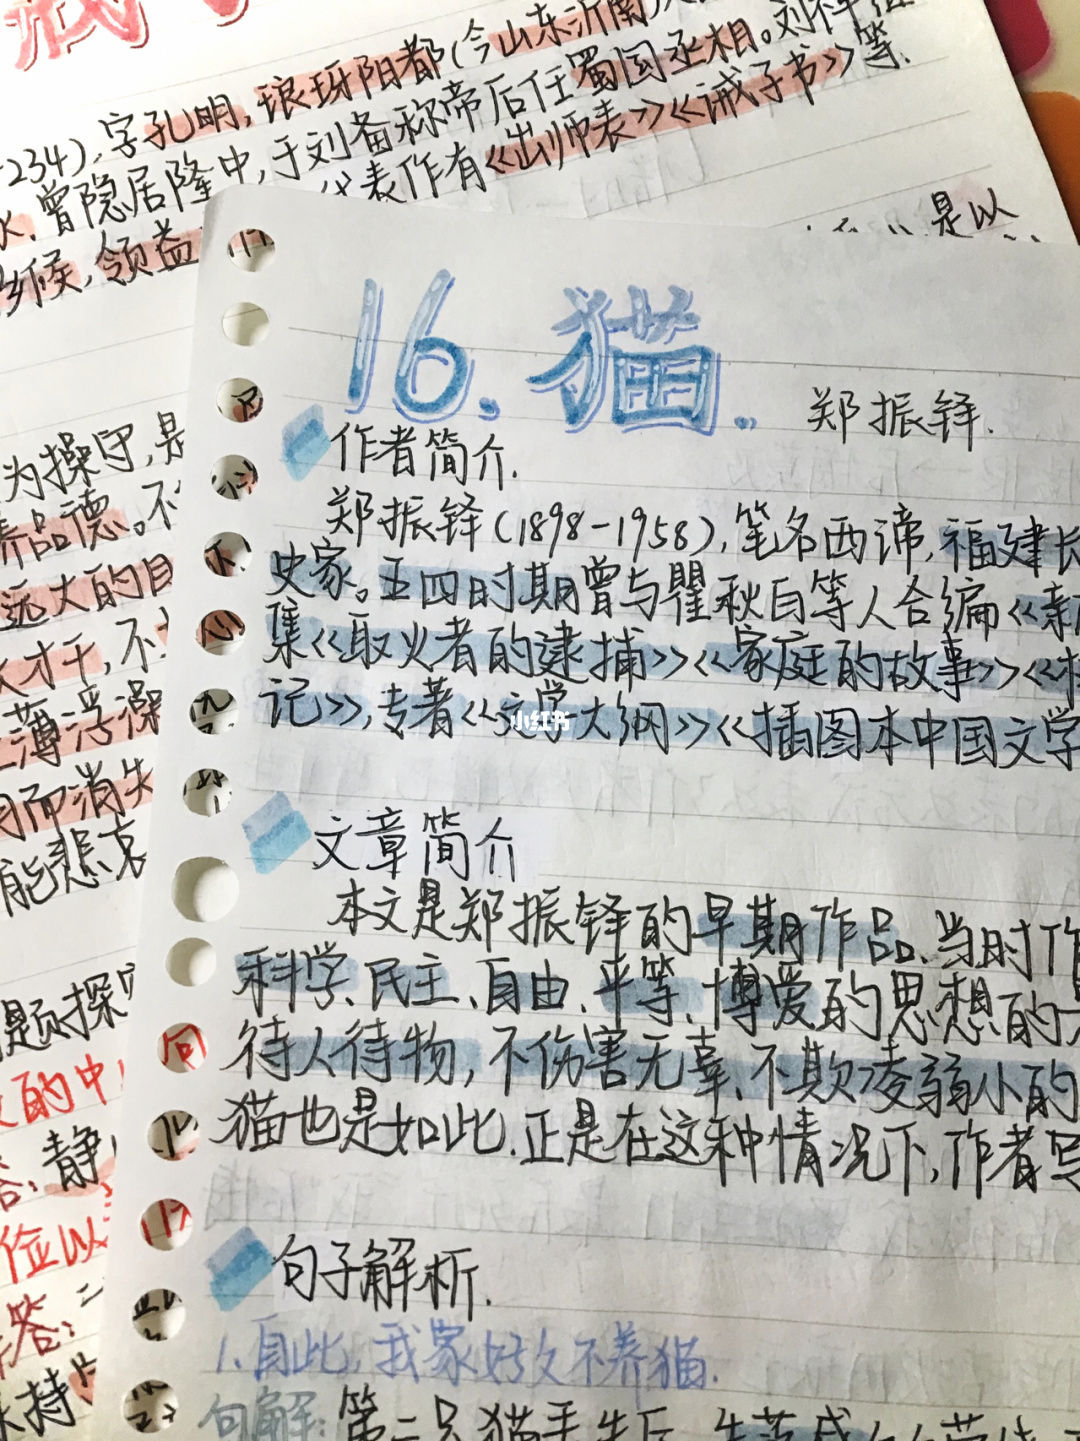 -234),字孔明,琅琊阳都(今山东沂南
曾隐居隆中,于刘备称帝后任蜀国丞相。刘
代表作有《出师表》《诫子书》等.
乡候,领益
是以
为操守,是
养品德。不
远大的目
才干,不
薄浮躁
而消失
能悲哀
题探究
的中
静
俭以
答:
保持
16.猫.
郑振铎.
作者简介.
郑振铎(1898-1958),笔名西谛,福建长
史家。五四时期曾与瞿秋白等人合编《新
集《取火者的逮捕》《家庭的故事》《
记》,专著《文学大纲》《插图本中国文学
小红书
文章简介
本文是郑振铎的早期作品、当时作
科学、民主、自由、平等、博爱的思想的
待人待物,不伤害无辜、不欺凌弱小的
猫也是如此.正是在这种情况下,作者写
句子解析.
1.自此,我家好久不养猫.
句解:第三只猫